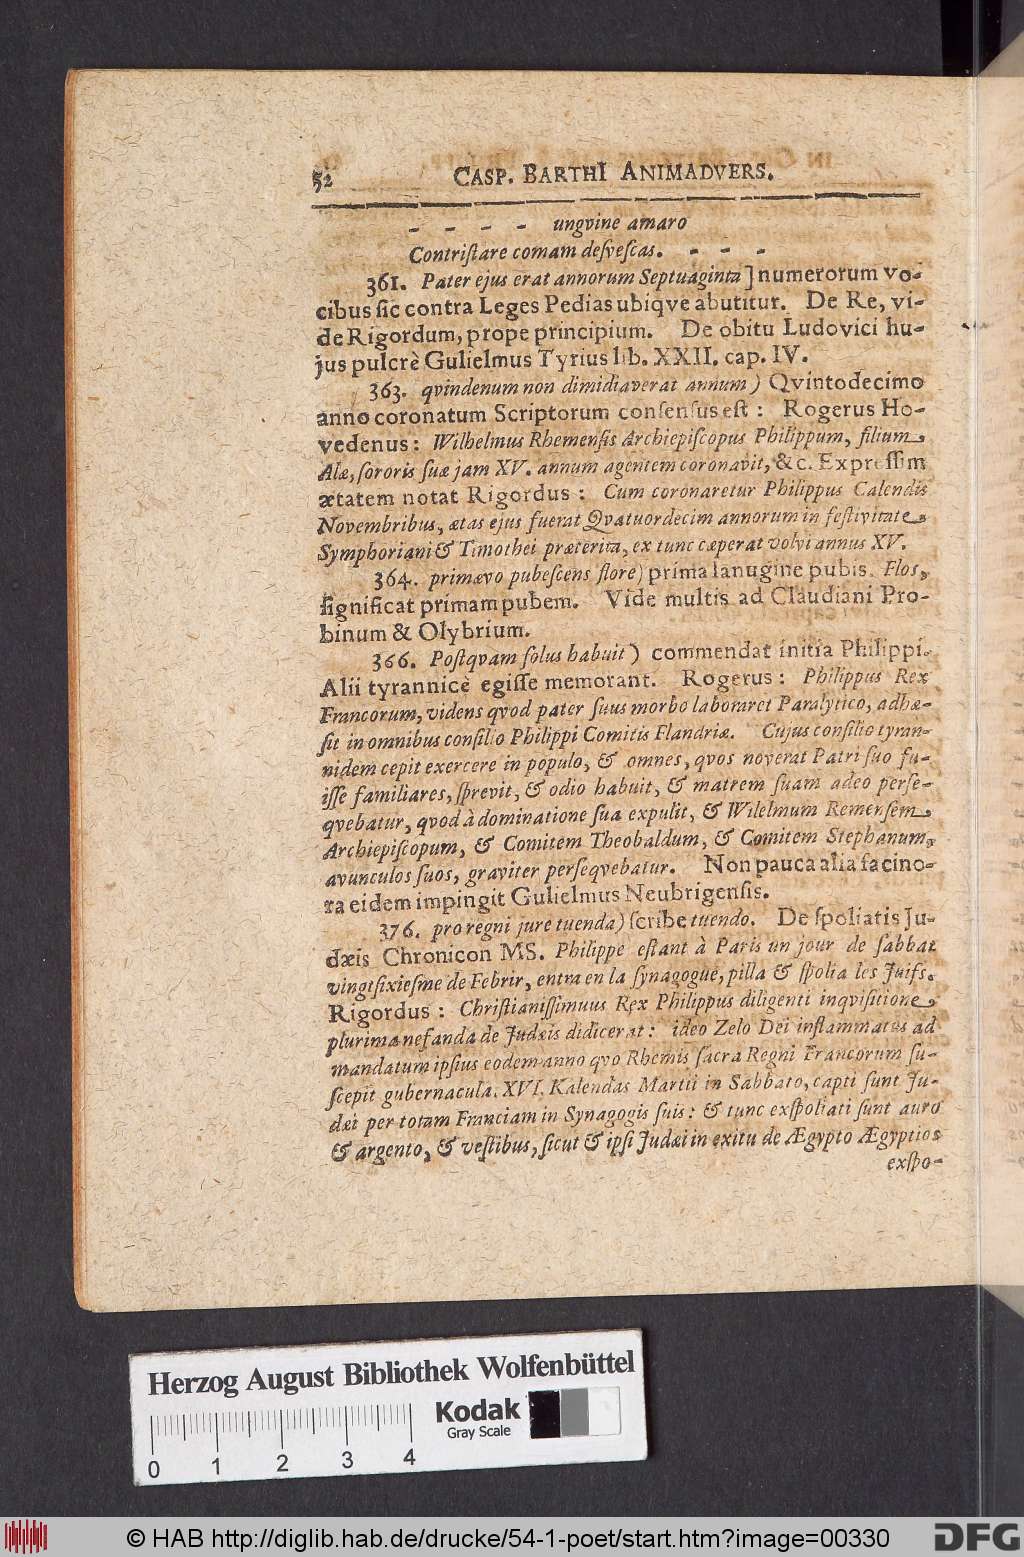 52 CASP. BARTHI ANIMADVERS.
- - - - ungvine amaro
Contriſtare comam deſveſcas. - - -
361. Pater ejus erat annorum Septuaginta] numerorum vo-
cibus ſic contra Leges Pedias ubiqve abutitur. De Re, vi-
de Rigordum, prope principium. De obitu Ludovici hu-
jus pulcrè Gulielmus Tyrius lib. XXII. cap. IV.
363. qvindenum non dimidiaverat annum) Qvintodecimo
anno coronatum Scriptorum conſenſus eſt: Rogerus Ho-
vedenus: Wilhelmus Rhemenſis Archiepiſcopus Philippum, filium
Alæ, ſororis ſuæ jam XV. annum agentem coronavit, &c. Expreſſim
ætatem notat Rigordus: Cum coronaretur Philippus Calendis
Novembribus, ætas ejus fuerat Qvatuordecim annorum in feſtivitate
Symphoriani & Timothei præterita, ex tunc cæperat volvi annus XV.
364. primævo pubeſcens flore) prima lanugine pubis. Flos,
ſignificat primam pubem. Vide multis ad Claudiani Pro-
binum & Olybrium.
366. Poſtqvam ſolus habuit) commendat initia Philippi.
Alii tyrannicè egiſſe memorant. Rogerus: Philippus Rex
Francorum, videns qvod pater ſuus morbo laboraret Paralytico, adhæ-
ſit in omnibus conſilio Philippi Comitis Flandriæ. Cujus conſilio tyran-
nidem cepit exercere in populo, & omnes, qvos noverat Patri ſuo fu-
iſſe familiares, ſprevit, & odio habuit, & matrem ſuam adeo perſe-
qvebatur, qvod à dominatione ſua expulit, & Wilelmum Remenſem
Archiepiſcopum, & Comitem Theobaldum, & Comitem Stephanum,
avunculos ſuos, graviter perſeqvebatur. Non pauca alia facino-
ra eidem impingit Gulielmus Neubrigenſis.
376. pro regni jure tuenda) ſcribe tuendo. De ſpoliatis Ju-
dæis Chronicon MS. Philippe eſtant à Paris un jour de ſabbat
vingtſixieſme de Febrir, entra en la ſynagogue, pilla & ſpolia les Juifs.
Rigordus: Chriſtianiſſimuus Rex Philippus diligenti inqviſitione
plurima nefanda de Judæis didicerat: ideo Zelo Dei inflammatus ad
mandatum ipſius eodem anno qvo Rhemis ſacra Regni Francorum ſu-
ſcepit gubernacula. XVI. Kalendas Martii in Sabbato, capti ſunt Ju-
dæi per totam Franciam in Synagogis ſuis: & tunc exſpoliati ſunt auro
& argento, & veſtibus, ſicut & ipſi Judæi in exitu de Ægypto Ægyptios
exſpo-
Herzog August Bibliothek Wolfenbüttel
Kodak
Gray Scale
0 1 2 3 4
© HAB http://diglib.hab.de/drucke/54-1-poet/start.htm?image=00330
DFG